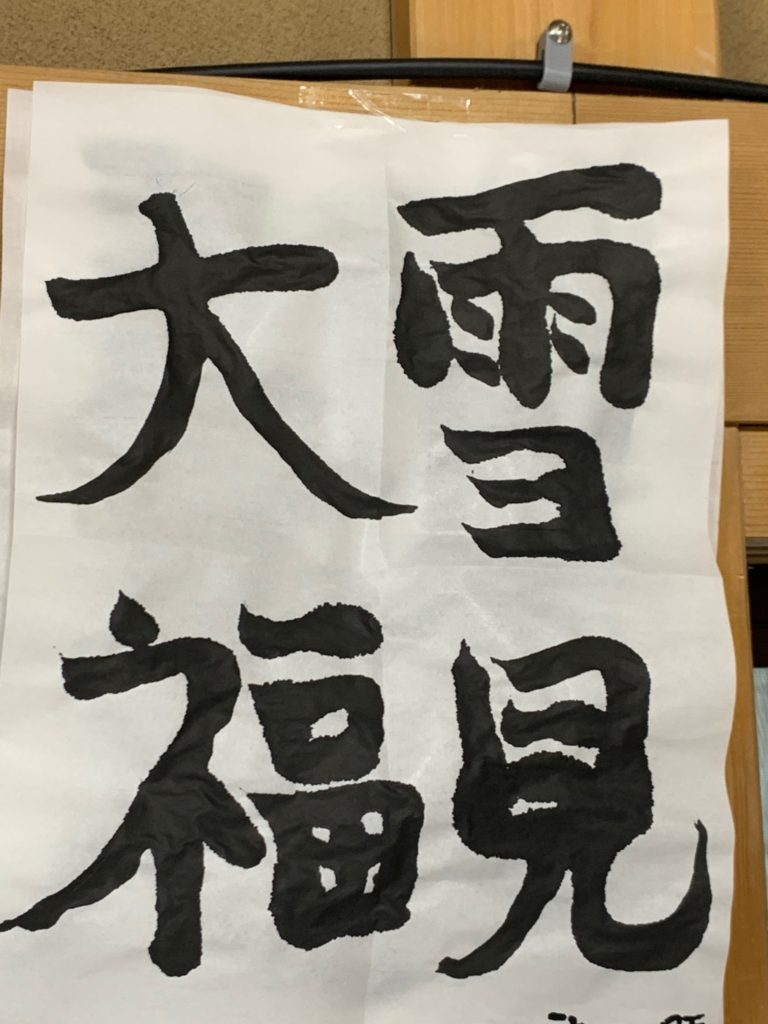 雪見
大福